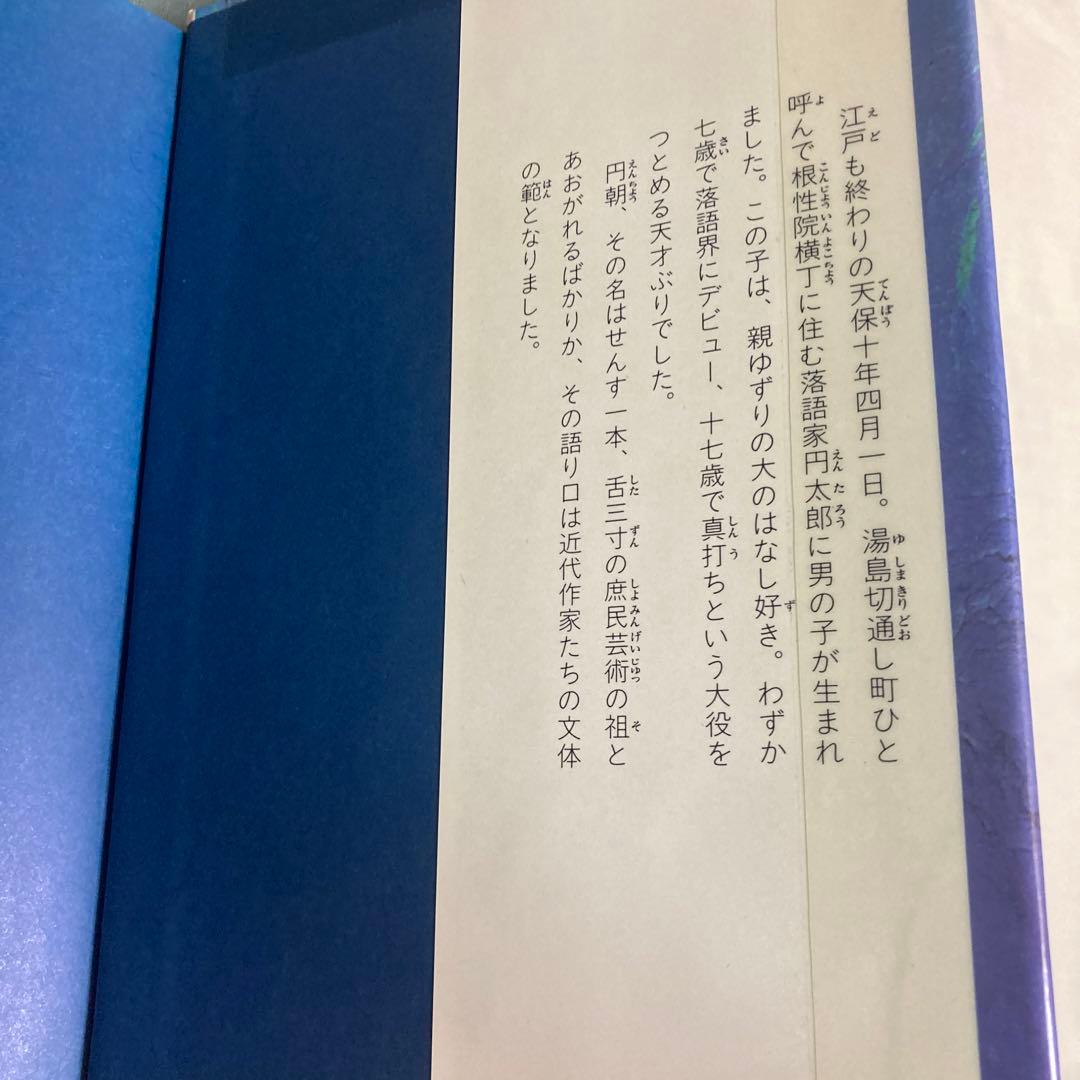 江戸も終わりの天保十年四月一日。湯島切通し町ひと
呼んで根性院横丁に住む落語家円太郎に男の子が生まれ
ました。この子は、親ゆずりの大のはなし好き。わずか
七歳で落語界にデビュー、十七歳で真打ちという大役を
つとめる天才ぶりでした。
円朝、その名はせんす一本、舌三寸の庶民芸術の祖と
あおがれるばかりか、その語り口は近代作家たちの文体
の範となりました。